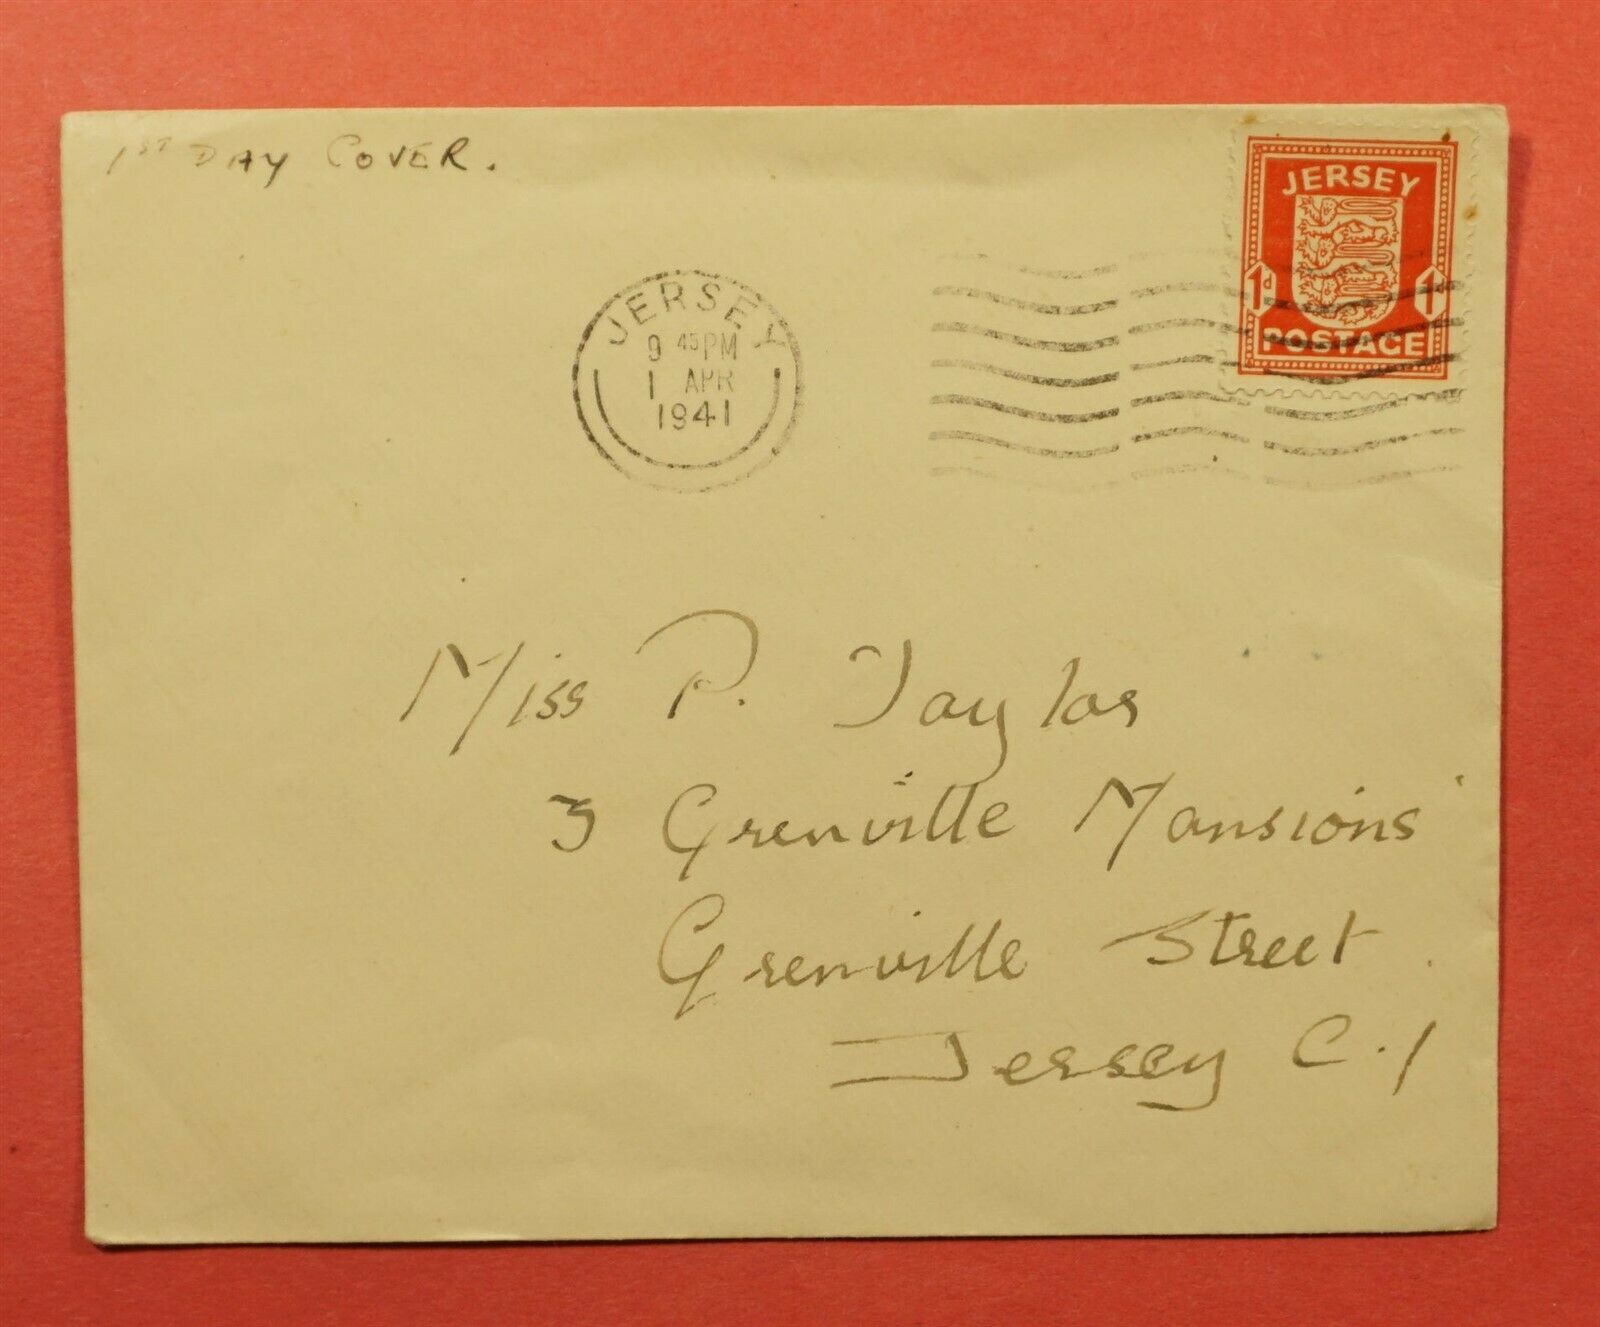 1ST DAY COVER.
JERSEY
1d 1d
POSTAGE
JERSEY
9 45PM
1 APR
1941
Miss P. Taylor
3 Grenville Mansions
Grenville Street
Jersey C.I